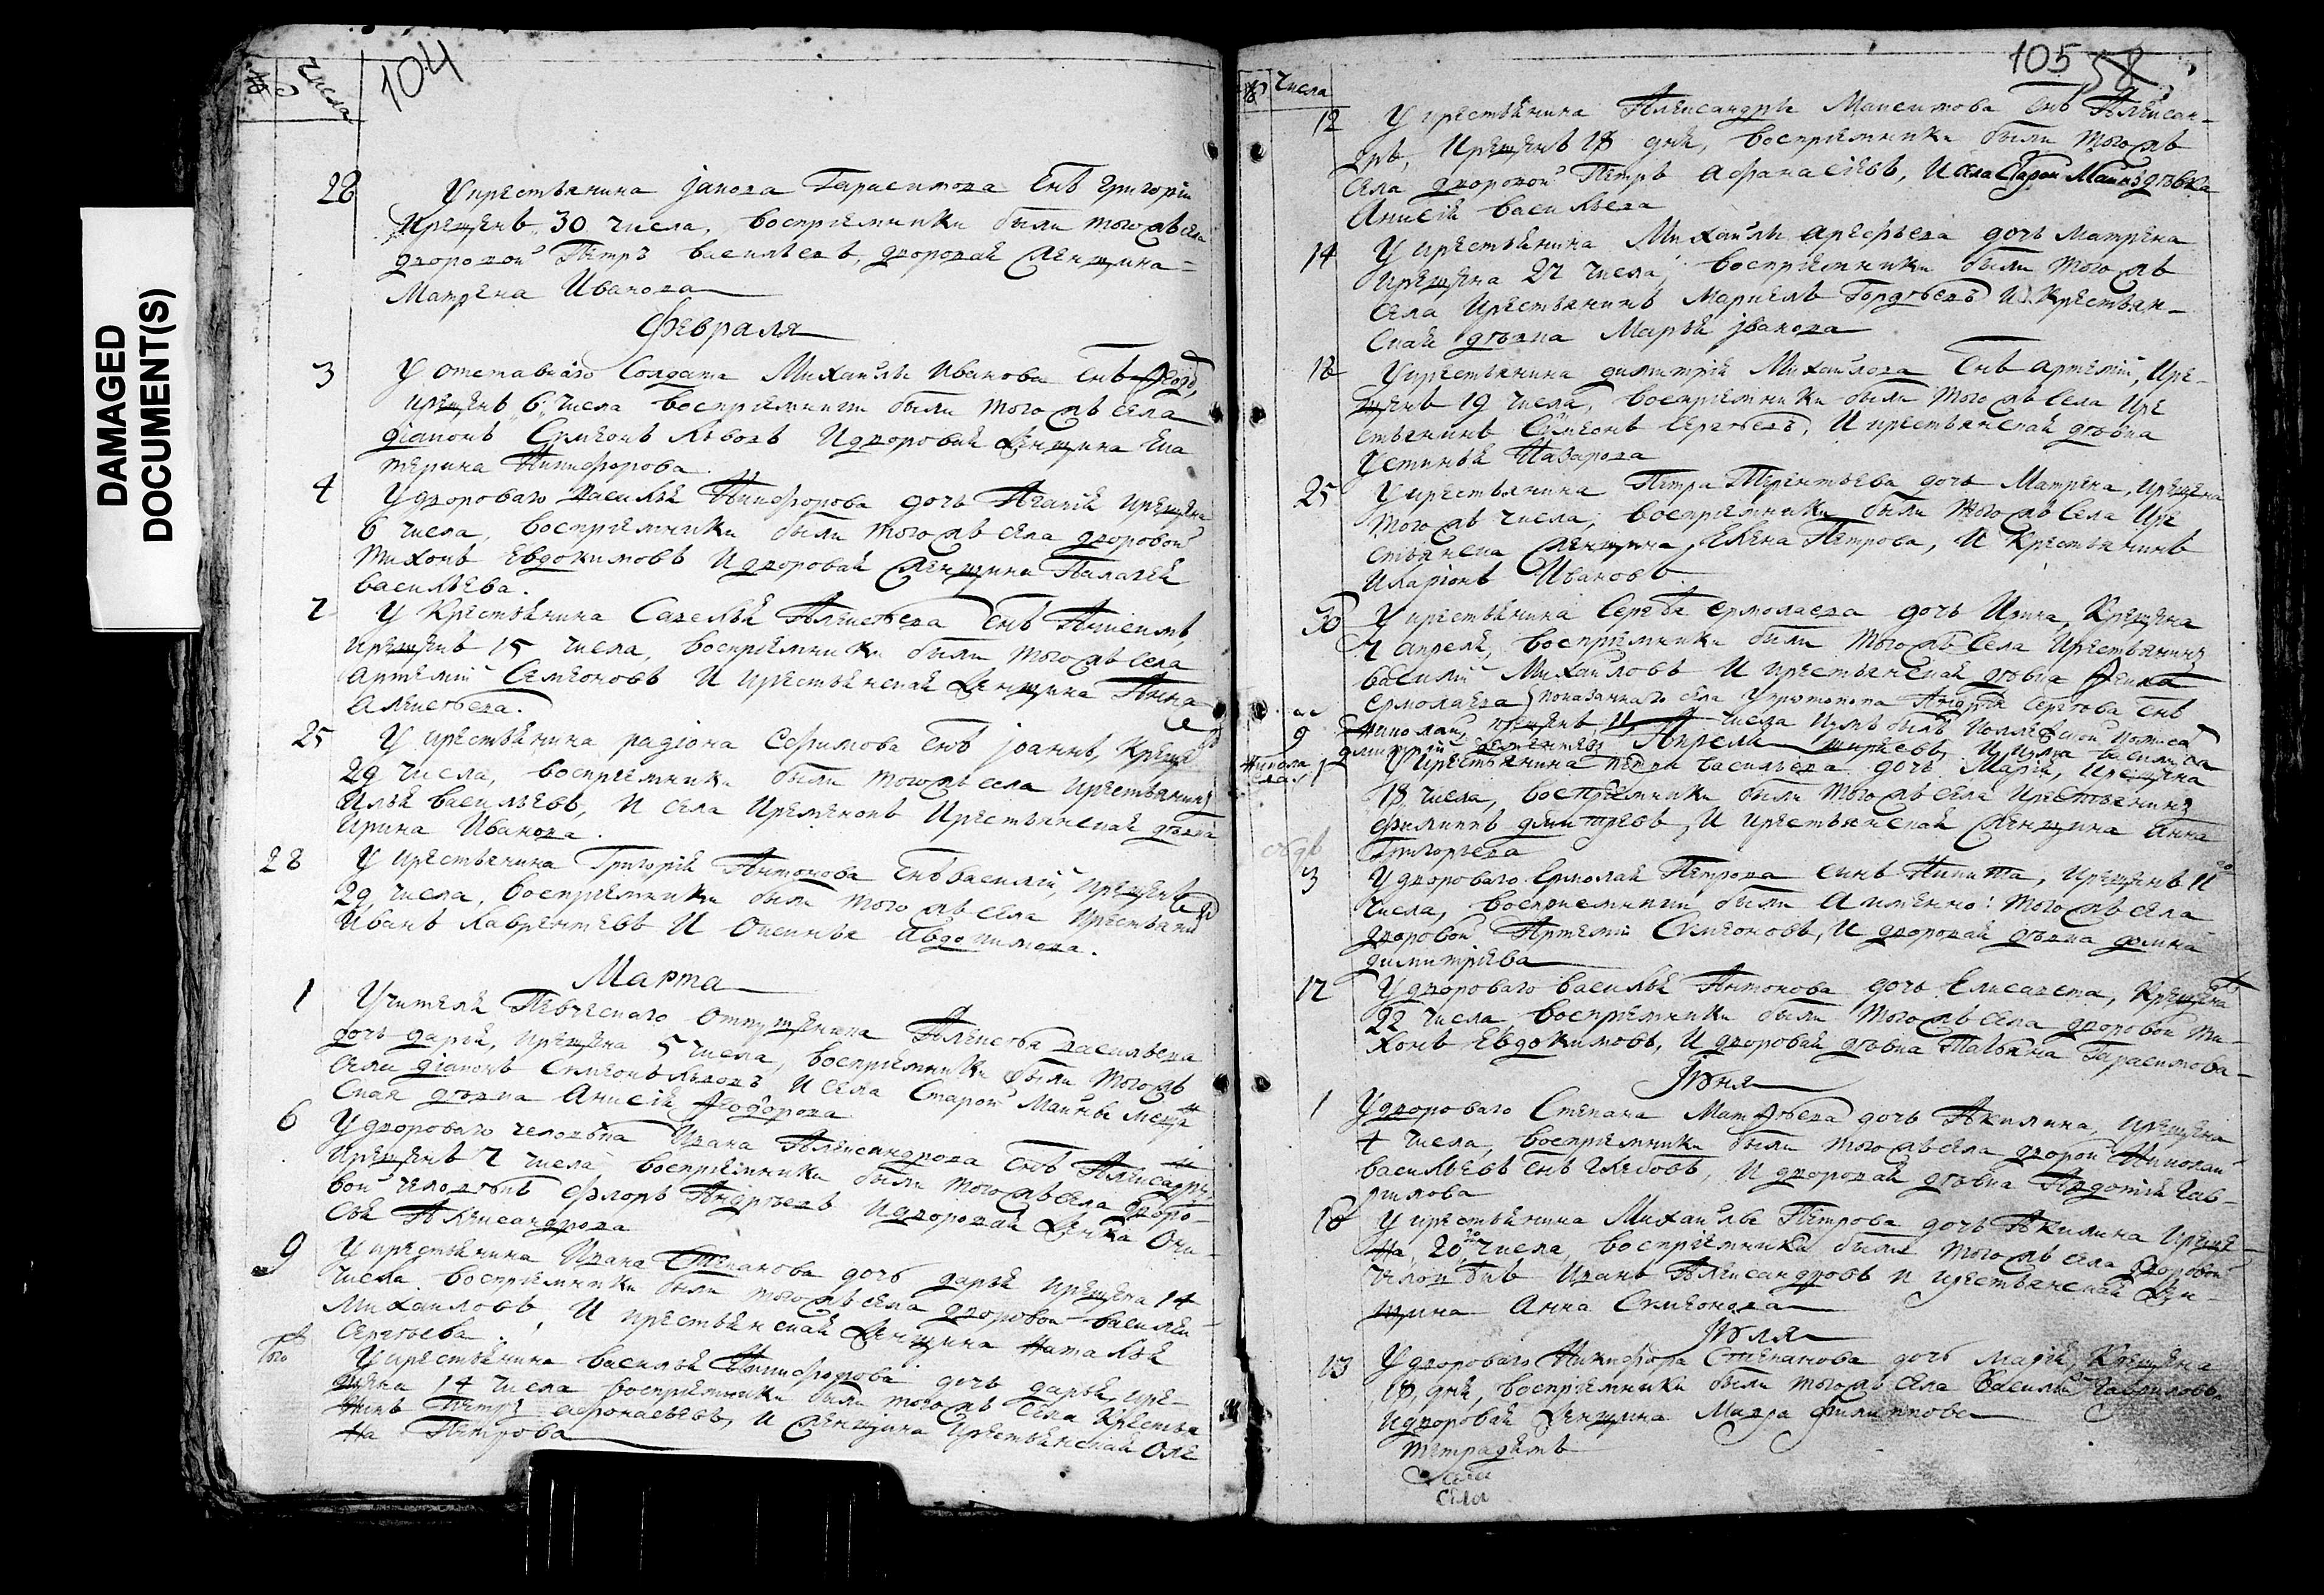 DAMAGED
DOCUMENT(S)
№
Числа
104
28 У крестьянина Іакова Гарасимова Снъ Григорій
Крещенъ 30 числа, воспріемники были тогожъ села
дворовой Петръ Васильевъ, дворовая женщина
Матрена Иванова
Февраля
3 У отставнаго Солдата Михайлы Иванова Снъ Феодръ,
крещенъ 6 числа воспріемники были тогожъ села
діаконъ Симеонъ Львовъ И дворовая женщина Ека
терина Никифорова
4 У двороваго Василья Никифорова дочь Агафія крещена
6 числа, воспріемники были тогожъ села дворовой
Тихонъ Евдокимовъ И дворовая женщина Палагея
Васильева.
7 У Крестьянина Савелья Алексѣева Снъ Анисимъ,
крещенъ 15 числа, воспріемники были тогожъ села
Артемій Семеоновъ И крестьянская женщина Анна
Алексѣева.
25 У крестьянина Радіона Ефимова Снъ Іоаннъ, Крещенъ
29 числа, воспріемники были тогожъ села крестьянинъ
Илья Васильевъ, И села Кременокъ Крестьянская дѣвка
Ирина Иванова.
28 У крестьянина Григорія Антонова Снъ Василій, крещенъ
29 числа, воспріемники были тогожъ села крестьянинъ
Иванъ Лаврентьевъ И Оксинья Авдокимова.
Марта
1 Учителя Певческаго отпущеника Алексѣя Васильева
дочь Дарія, крещена 5 числа, воспріемники были тогожъ
села діаконъ Симеонъ Львовъ И села Старой Майны мещан
ская дѣвка Анисія Феодорова
6 У двороваго человѣка Ивана Александрова Снъ Александръ,
крещенъ 7 числа воспріемники были тогожъ села дворо-
вой человѣкъ Флоръ Андреевъ И дворовая женка Окси-
нья Александрова
9 У крестьянина Ивана Степанова дочь Дарья крещена 14
числа воспріемники были тогожъ села дворовой Василей
Михайловъ, И крестьянская женщина Наталья
Сергѣева.
У крестьянина Василья Никифорова дочь Дарья, кре-
щена 14 числа воспріемники были тогожъ села Крестья
нинъ Петръ Афонасьевъ, И женщина Крестьянская Оле
на Петрова
105 58
№ Числа
12 У крестьянина Александры Максимова Снъ Алексан-
дръ, Крещенъ 18 дня, воспріемники были тогожъ
села дворовой Петръ Афанасіевъ, И села Старой Майны дѣвка
Анисія Васильева
14 У крестьянина Михайлы Арефьева дочь Матрена
Крещена 27 числа, воспріемники были тогожъ
села Крестьянинъ Маркелъ Гордѣевъ И Крестьян-
ская дѣвка Марья Іванова
18 У крестьянина Димитрія Михайлова Снъ Артемій, Кре-
щенъ 19 числа, воспріемники были тогожъ села Кре
стьянинъ Симеонъ Сергѣевъ, И крестьянская дѣвка
Устинья Назарова
25 У крестьянина Петра Терентьева дочь Матрена, крещена
тогожъ числа, воспріемники были тогожъ села Кре
стьянска женщина, Елена Петрова, И Крестьянинъ
Иларіонъ Ивановъ.
30 У крестьянина Сергѣя Ермолаева дочь Ирина, Крещена
7 апреля, воспріемники были тогожъ села Крестьянинъ
Василій Михайловъ И крестьянская дѣвка Фекла
Ермолаева
показаннаго села У Андрея Сергѣева Снъ
9 Николай, крещенъ 11 числа
Апреля
1 У крестьянина Петра Васильева дочь Марія, крещена
18 числа, воспріемники были тогожъ села Крестьянинъ
Филиппъ Дмитревъ, И крестьянская женщина Анна
Григорьева
3 У двороваго Ермолая Петрова сынъ Никита, крещенъ 11го
числа, воспріемники были а именно: тогожъ села
дворовой Артемій Симеоновъ, И дворовая дѣвка Домна
Димитрева
17 У двороваго Василья Антонова дочь Елисавета, Крещена
22 числа воспріемники были тогожъ села дворовой Ти-
хонъ Евдокимовъ, И дворовая дѣвка Татьяна Гарасимова
Июня
1 У двороваго Степана Матфѣева дочь Акилина, крещена
4 числа, воспріемники были тогожъ села дворовой Николай
Васильевъ Снъ Глебовъ, И дворовая дѣвка Авдотія Гав-
рилова
18 У крестьянина Михайлы Петрова дочь Акилина Креще
на, 20го числа, воспріемники были тогожъ села дворовой
человѣкъ Иванъ Александровъ И крестьянская жен-
щина Анна Симеонова
Июля
13 У двороваго Никифора Степанова дочь Марія, Крещена
18 дня, воспріемники были тогожъ села Василій Гавриловъ
И дворовая женщина Мавра Филиппова
села
села